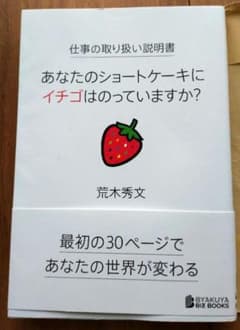 仕事の取り扱い説明書
あなたのショートケーキに
イチゴはのっていますか?
荒木秀文
最初の30ページで
あなたの世界が変わる
BYAKUYA
BIZ BOOKS